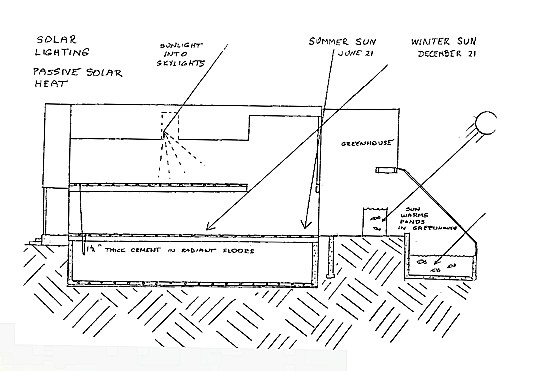 SOLAR
LIGHTING
PASSIVE SOLAR
HEAT
SUNLIGHT
INTO
SKYLIGHTS
SUMMER SUN
JUNE 21
WINTER SUN
DECEMBER 21
GREENHOUSE
SUN
WARMS
PANDS
IN GREENHOUSE
1½" THICK CEMENT IN RADIANT FLOORS